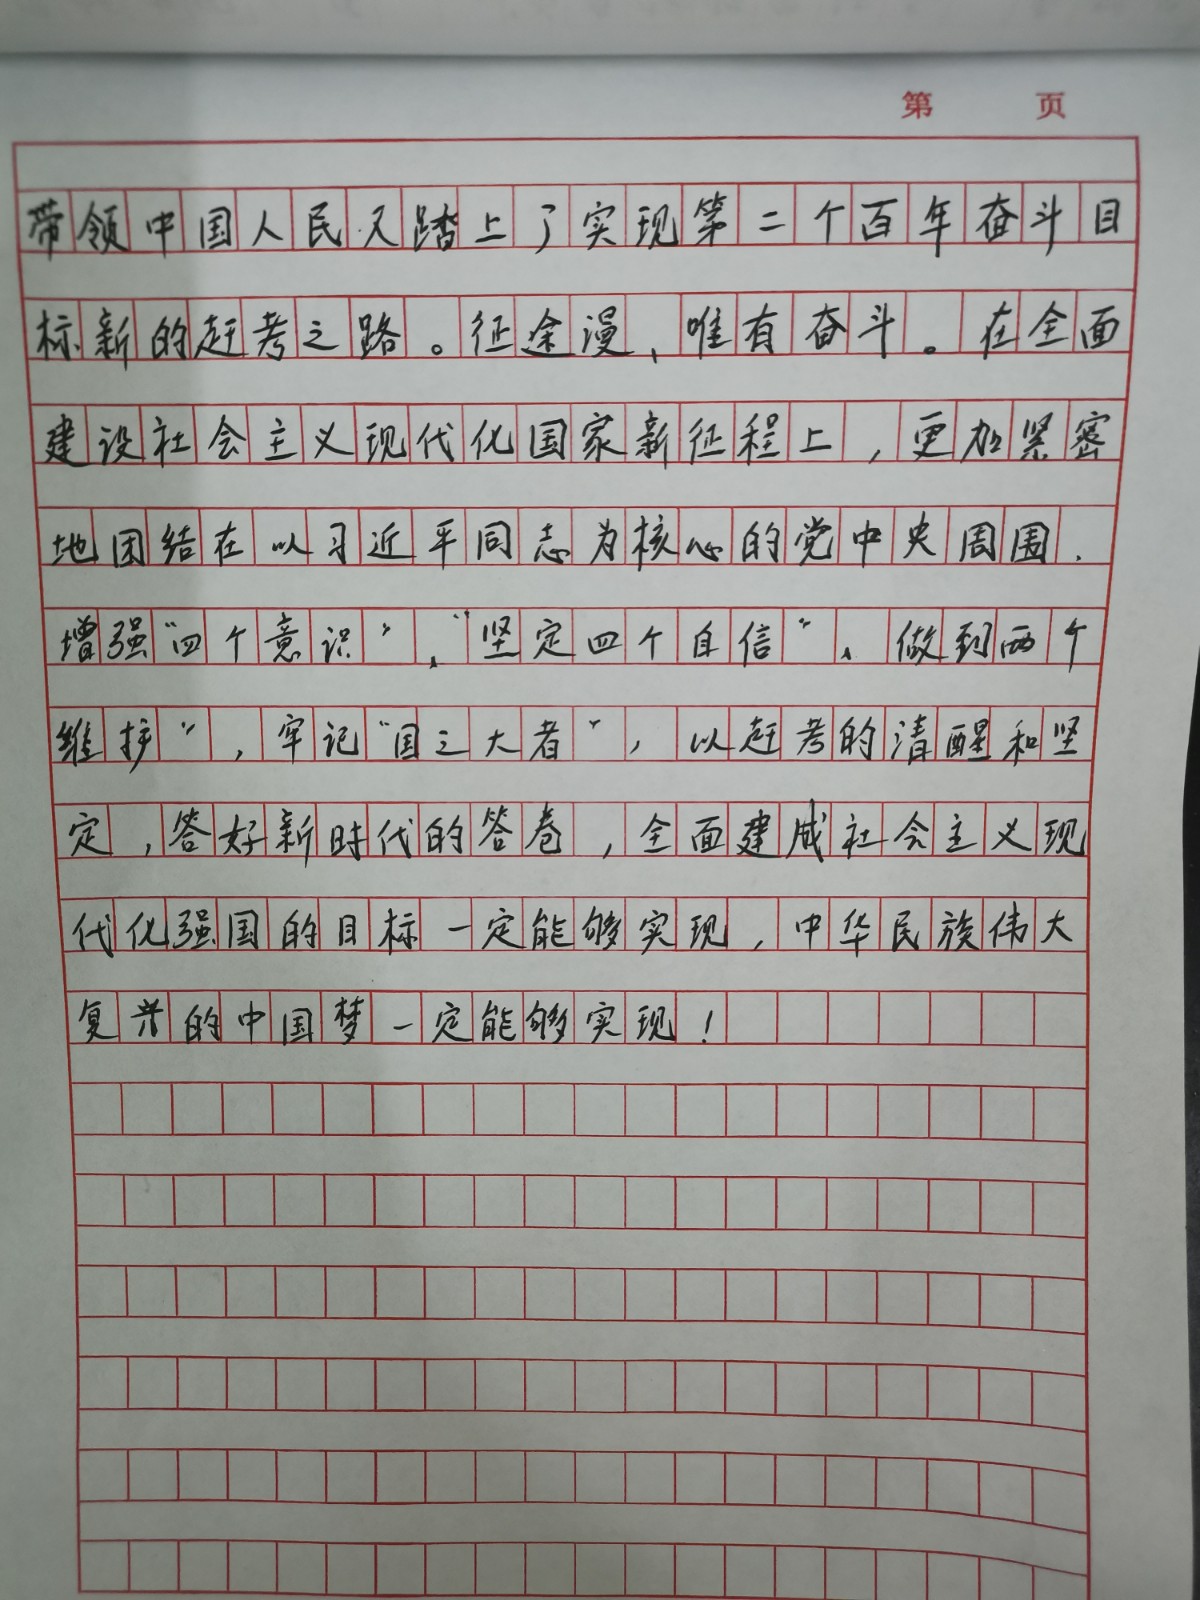 第 页
带领中国人民又踏上了实现第二个百年奋斗目
标新的赶考之路。征途漫、唯有奋斗。在全面
建设社会主义现代化国家新征程上,更加紧密
地团结在以习近平同志为核心的党中央周围.
增强“四个意识”、“坚定四个自信”、做到两个
维护”,牢记“国之大者”,以赶考的清醒和坚
定,答好新时代的答卷,全面建成社会主义现
代化强国的目标一定能够实现,中华民族伟大
复兴的中国梦一定能够实现!